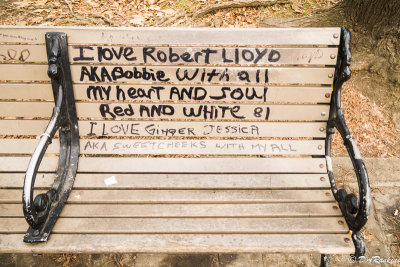 I love Robert Lloyd
AKA Bobbie With all
my heart AND soul
Red AND White 81
I LOVE GINGER JESSICA
AKA SWEETCHEEKS WITH MY ALL
© D.A.Rankins